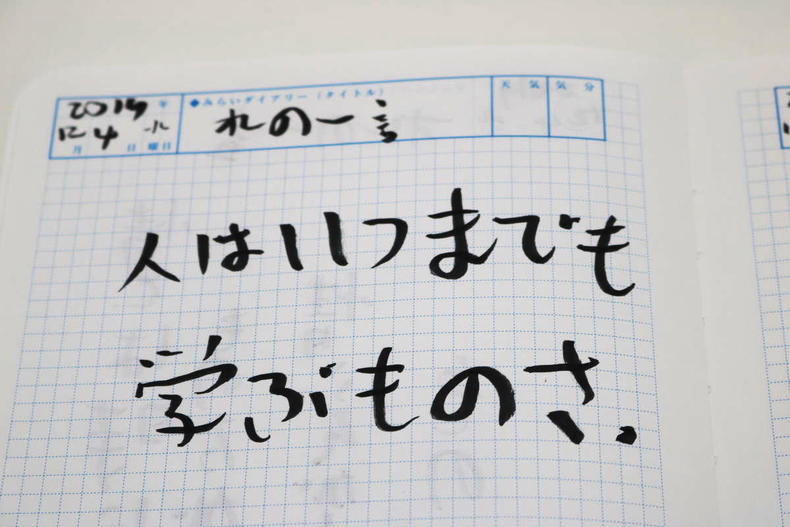 2019年 ◆みらいダイアリー(タイトル) 天気 気分
12月4日 水曜日 れの一言
人はいつまでも
学ぶものさ.